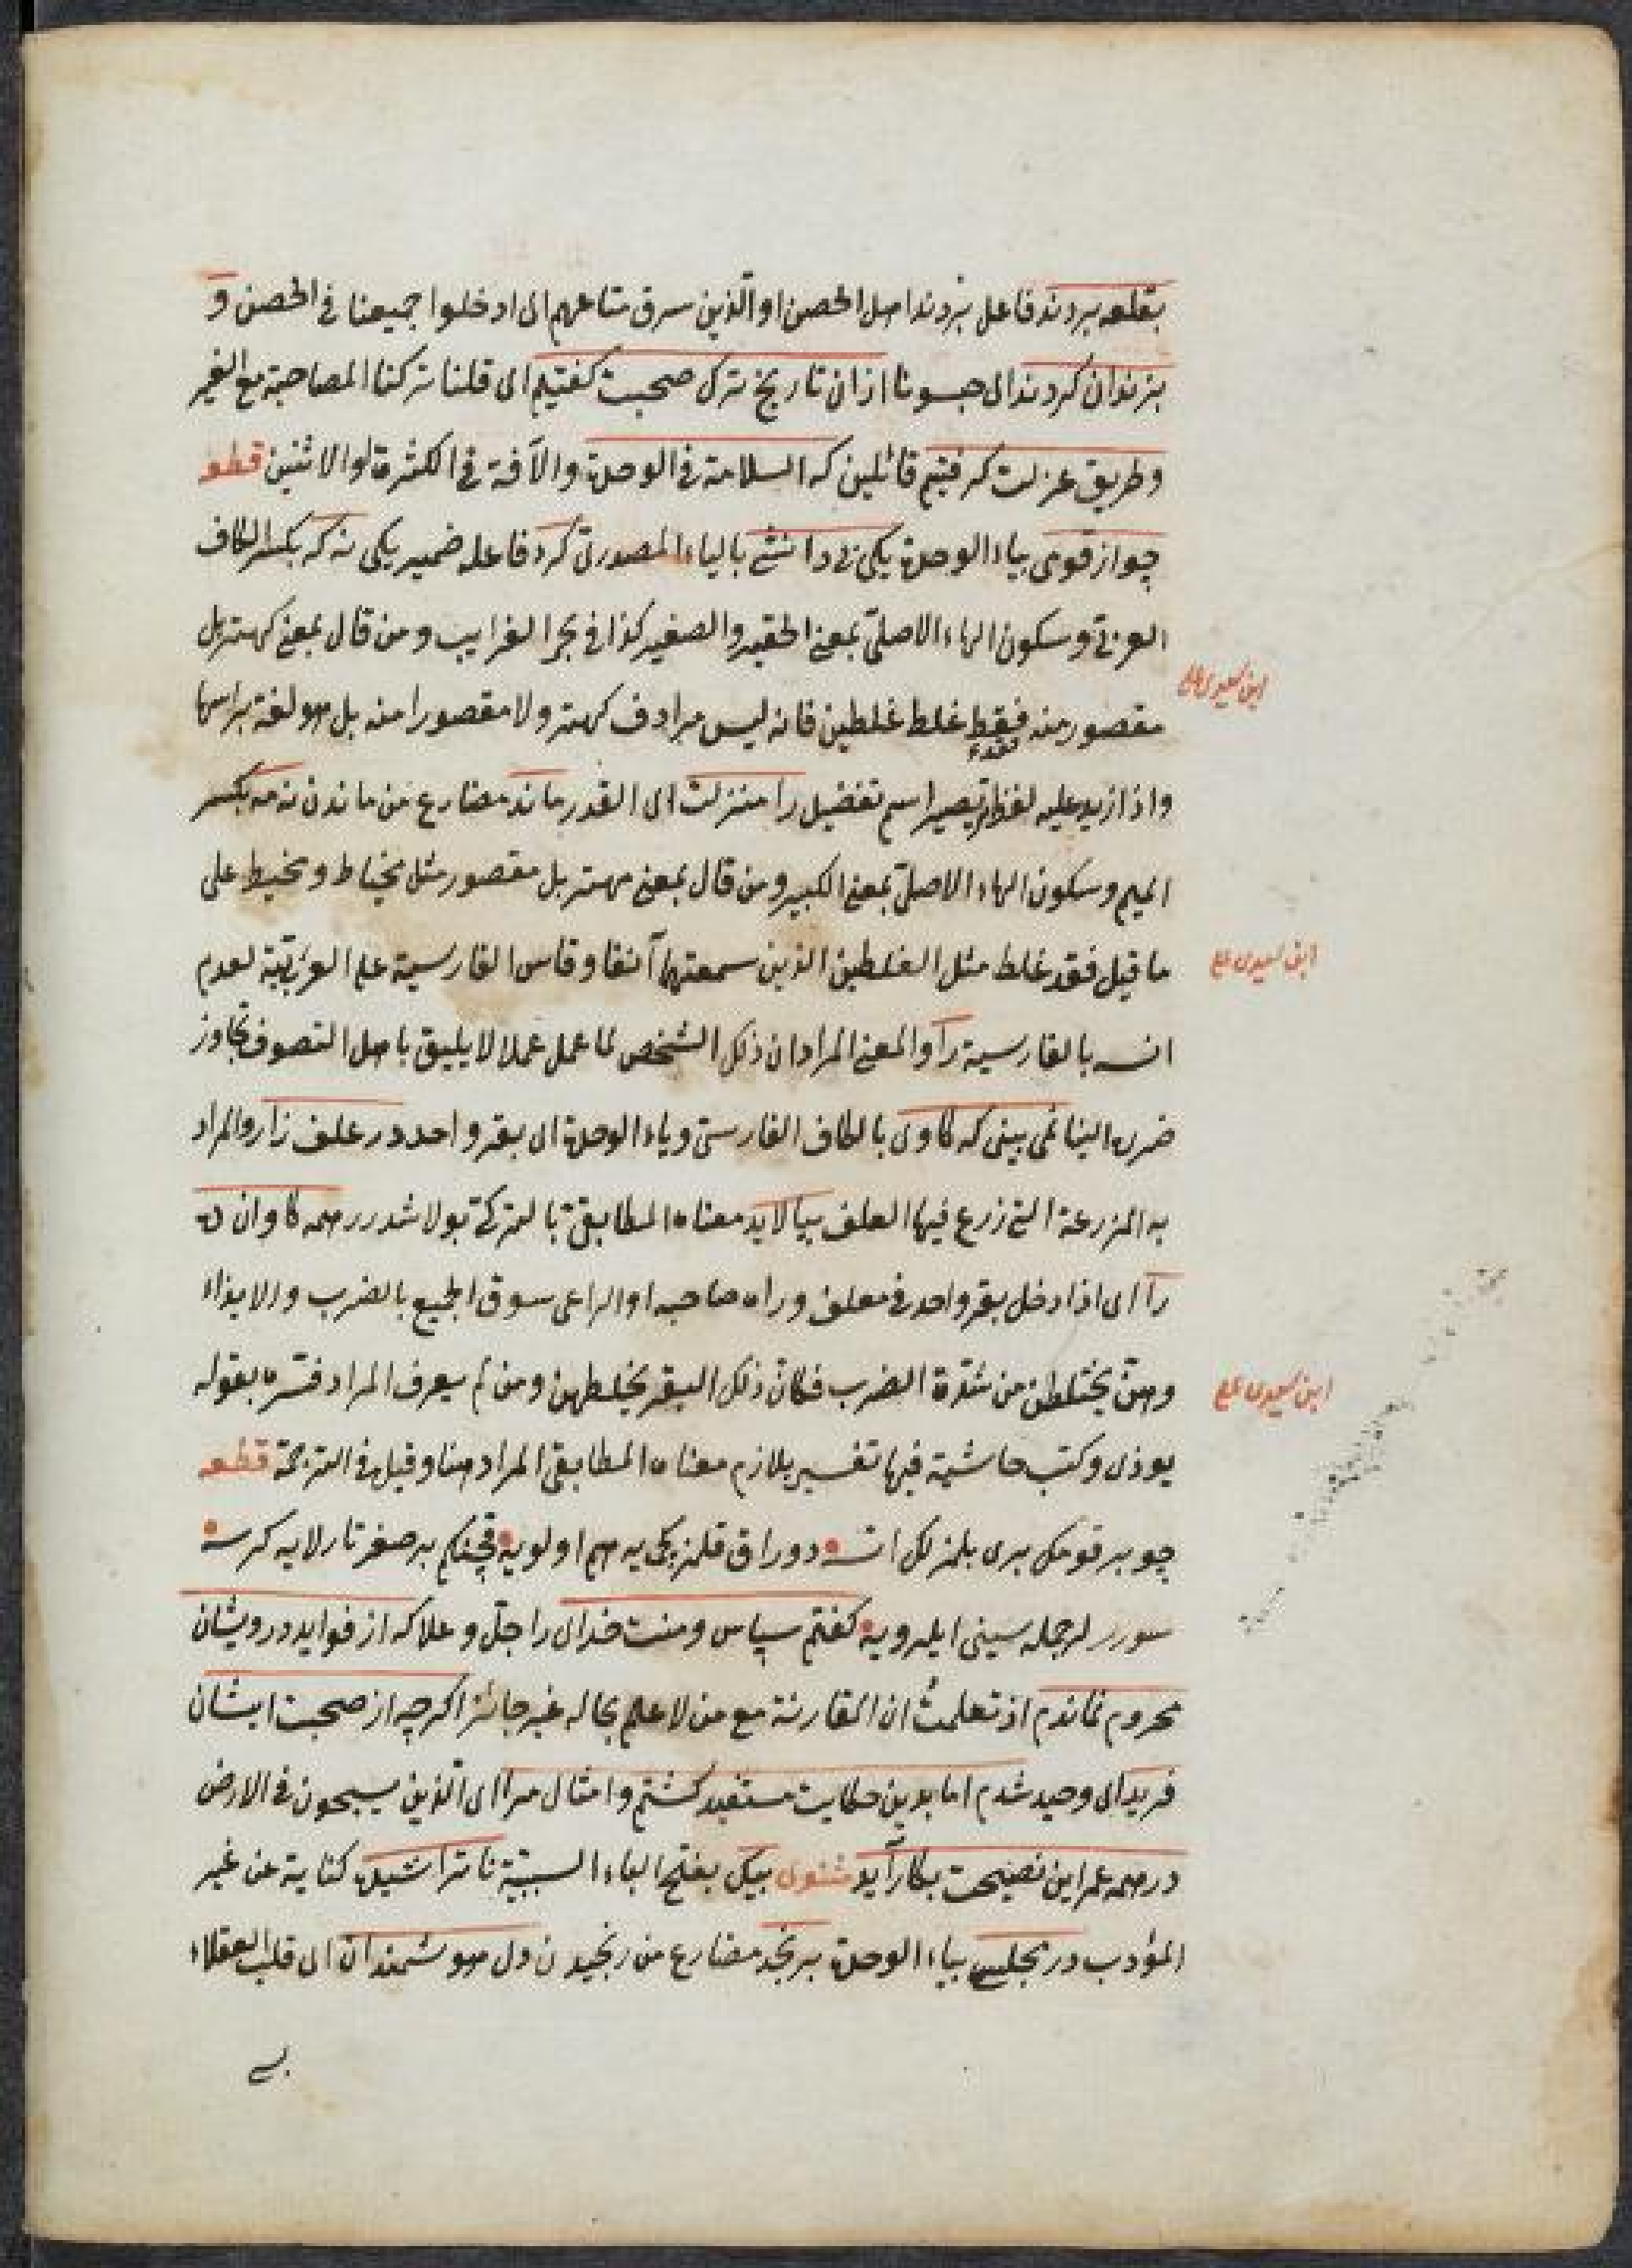 بقلعه بردند فاعل بردند اهل الحصن او الّذين سرق متاعهم اى ادخلوا جميعنا فى الحصن و
بزندان كردند اى حبسونا از ان تاريخ ترك صحبت كفتيم اى قلنا تركنا المصاحبة مع الغير
وطريق عزلت كرفتيم قائلين كه السلامة فى الوحدة والآفة فى الكثرة او الاثنين قطعه
چو از قومى بياء الوحدة يكى بى دانشى بالياء المصدرى كرد فاعله ضمير يكى نه كه بكسر الكاف
العربى وسكون الهاء الاصلى بمعنى الحقير والصغير كذا فى بحر الغرايب ومن قال بمعنى كهتر بل
مقصور منه فقط غلط غلطين فانه ليس مرادف كهتر ولا مقصورا منه بل هو لغة براسها
واذا زيد عليه لفظ تر يصير اسم تفضيل را منزلت اى القدر ماند مضارع من ماندن نه مه بكسر
الميم وسكون الهاء الاصلى بمعنى الكبير ومن قال بمعنى مهتر بل مقصور مثل مخياط ومخيط على
ما قيل فقد غلط مثل الغلطين الذين سمعتهما آنفا وقاس الفارسية على العربيّة لعدم
انسه بالفارسية را والمعنى المراد ان ذلك الشخص لما عمل عملا لا يليق باهل التصوف تجاوز
ضرره الينا نمى بينى كه كاوى بالكاف الفارسى وياء الوحدة اى بقر واحد در علف زار والمراد
به المزرعة التى زرع فيها العلف بيالايد معناه المطابقى بالتركى بولاشدرر همه كاوان ده
را اى اذا دخل بقر واحد فى معلف وراه صاحبه او الراعى سوق الجميع بالضرب والايذاء
وهنّ يختلطن من شدّة الضرب فكان ذلك البقر يخلطهن ومن لم يعرف المراد فسّره بقوله
يوذى وكتب حاشية فيها تفسير بلازم معناه المطابقى المراد هنا وقيل فى الترجمة قطعه
چو بر قومك برى بلمزلك اتسه دوراق قلمز يكى يه هم اولويه قچنكم بر صغر تارلايه كرسه
سورر لر جمله سينى ايله رويه كفتم سپاس ومنت خداى را جلّ وعلا كه از فوايد درويشان
محروم نماندم اذ تعلمتُ ان المقارنة مع من لا علم بحاله غير جائز اكرچه از صحبت ايشان
فريد اى وحيد شدم اما بدين حكايت مستفيد كشتم و امثال مرا اى الّذين يسيحون فى الارض
در همه عمر اين نصيحت بكار آيد مثنوى بيك بفتح الباء السببيّة ناتراشيده كناية عن غير
المؤدب در مجلسى بياء الوحدة برنجد مضارع من رنجيدن دل هوشمندان اى قلب العقلاء